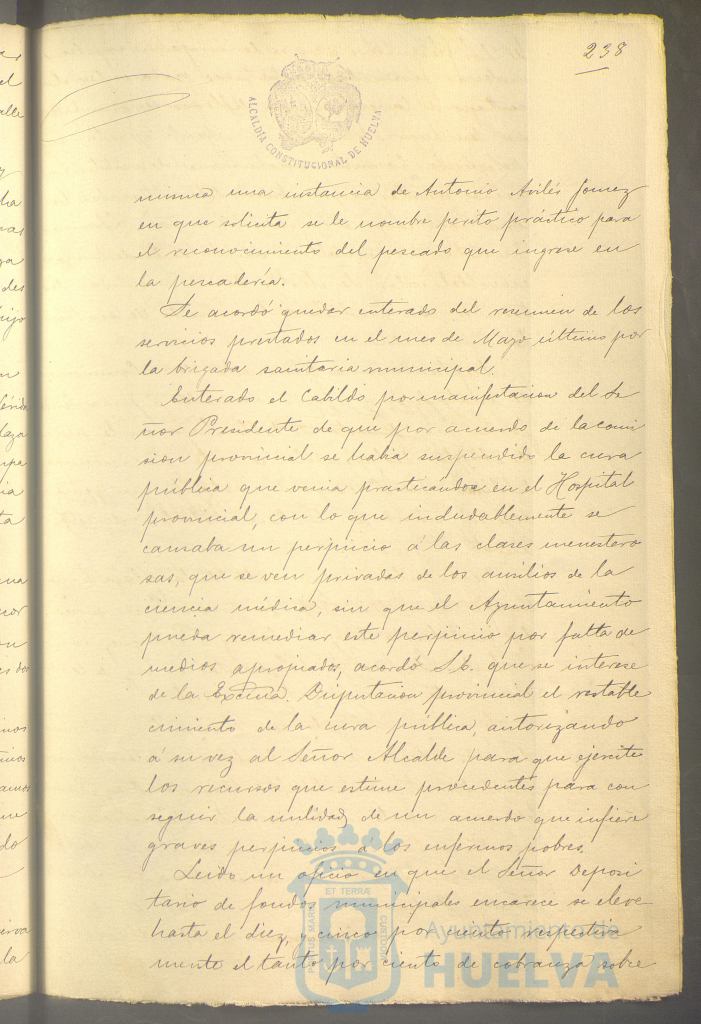 238
ALCALDÍA CONSTITUCIONAL DE HUELVA
misma una instancia de Antonio Avilés Gomez
en que solicita se le nombre perito práctico para
el reconocimiento del pescado que ingrese en
la pescadería.
Se acordó quedar enterado del resumen de los
servicios prestados en el mes de Mayo último por
la brigada sanitaria municipal.
Enterado el Cabildo por manifestacion del Se
ñor Presidente de que por acuerdo de la comi
sion provincial se habia suspendido la cura
pública que venia practicandose en el Hospital
provincial, con lo que indudablemente se
causaba un perjuicio á las clases menestero
sas, que se ven privadas de los auxilios de la
ciencia médica, sin que el Ayuntamiento
pueda remediar este perjuicio por falta de
medios apropiados, acordó S.E. que se interese
de la Excma. Diputacion provincial el restable
cimiento de la cura pública, autorizando
á su vez al Señor Alcalde para que ejercite
los recursos que estime procedentes para con
seguir la nulidad de un acuerdo que infiere
graves perjuicios á los enfermos pobres.
Leido un oficio en que el Señor Deposi
tario de fondos municipales encarece se eleve
hasta el diez, y cinco por ciento respectiva
mente el tanto por ciento de cobranza sobre
PORTUS MARIS ET TERRÆ CUSTODIA
Ayuntamiento de
HUELVA